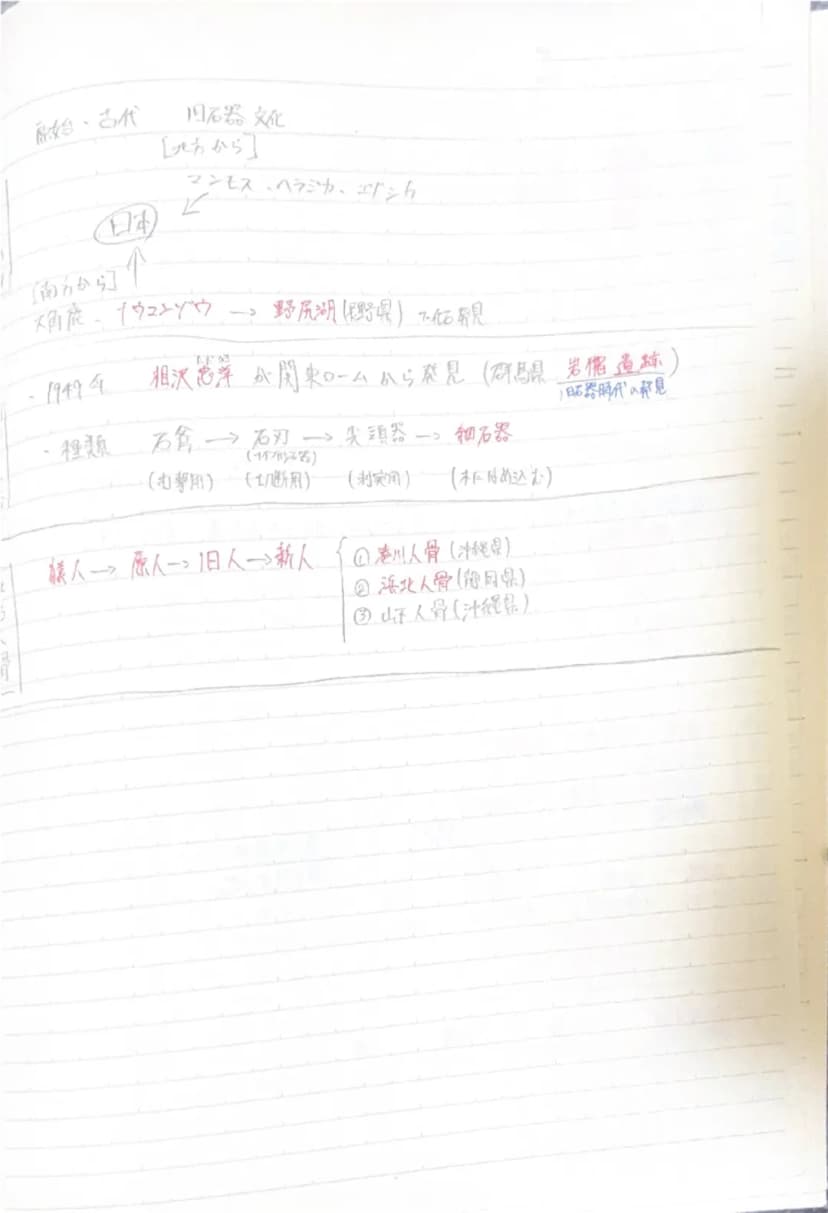 原始・古代 旧石器文化
[北方から]
マンモス、ヘラジカ、
日本
[南方から]
大角鹿、ナウマンゾウ → 野尻湖(長野県)で化石発見
・1949年 相沢忠洋が関東ロームから発見(群馬県 岩宿遺跡)
ただひろ
旧石器時代の発見
・種類 石斧 → 石刃 → 尖頭器 → 細石器
(ナイフ形石器)
(打撃用) (切断用) (刺突用) (木にはめ込む)
猿人 → 原人 → 旧人 → 新人
①港川人骨(沖縄県)
②浜北人骨(静岡県)
③山下人骨(沖縄県)